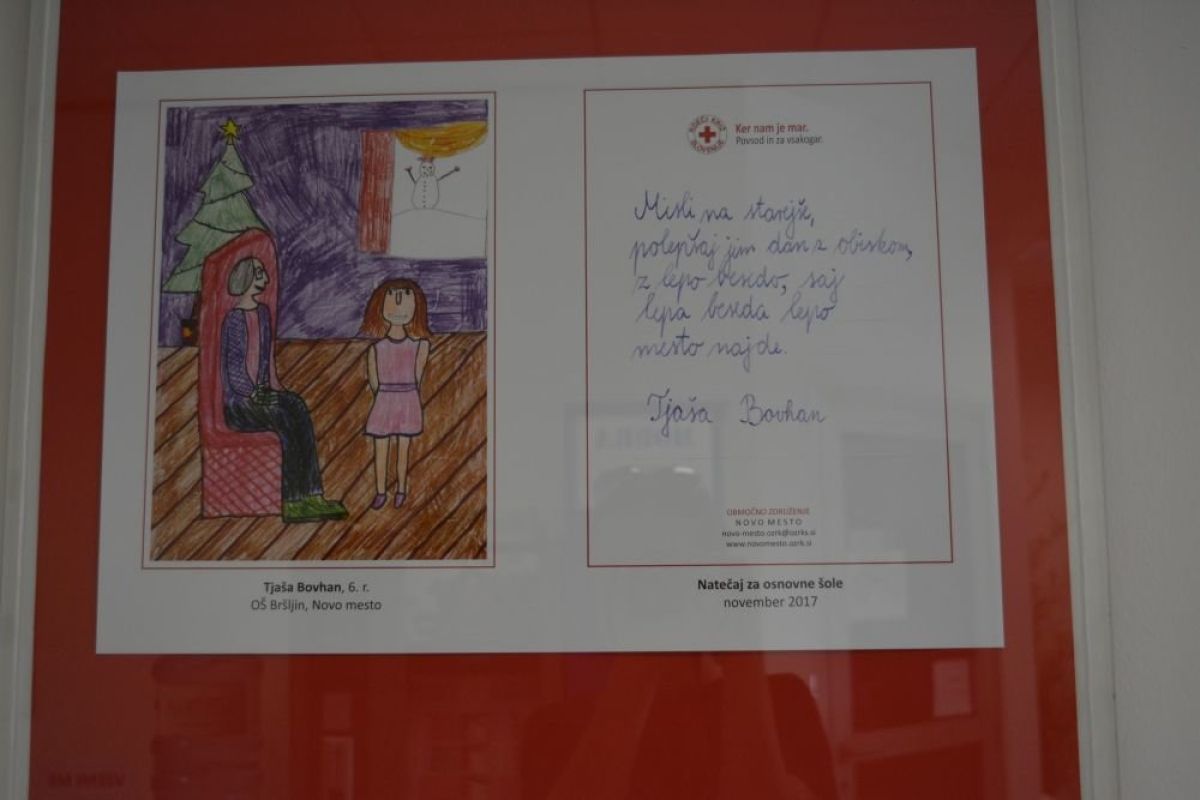 RDEČI KRIŽ SLOVENIJE
Ker nam je mar.
Povsod in za vsakogar.
Misli na starejše,
polepšaj jim dan z obiskom,
z lepo besedo, saj
lepa beseda lepo
mesto najde.
Tjaša Bovhan
OBMOČNO ZDRUŽENJE
NOVO MESTO
novo-mesto.ozrk@ozrks.si
www.novomesto.ozrk.si
Tjaša Bovhan, 6. r.
OŠ Bršljin, Novo mesto
Natečaj za osnovne šole
november 2017